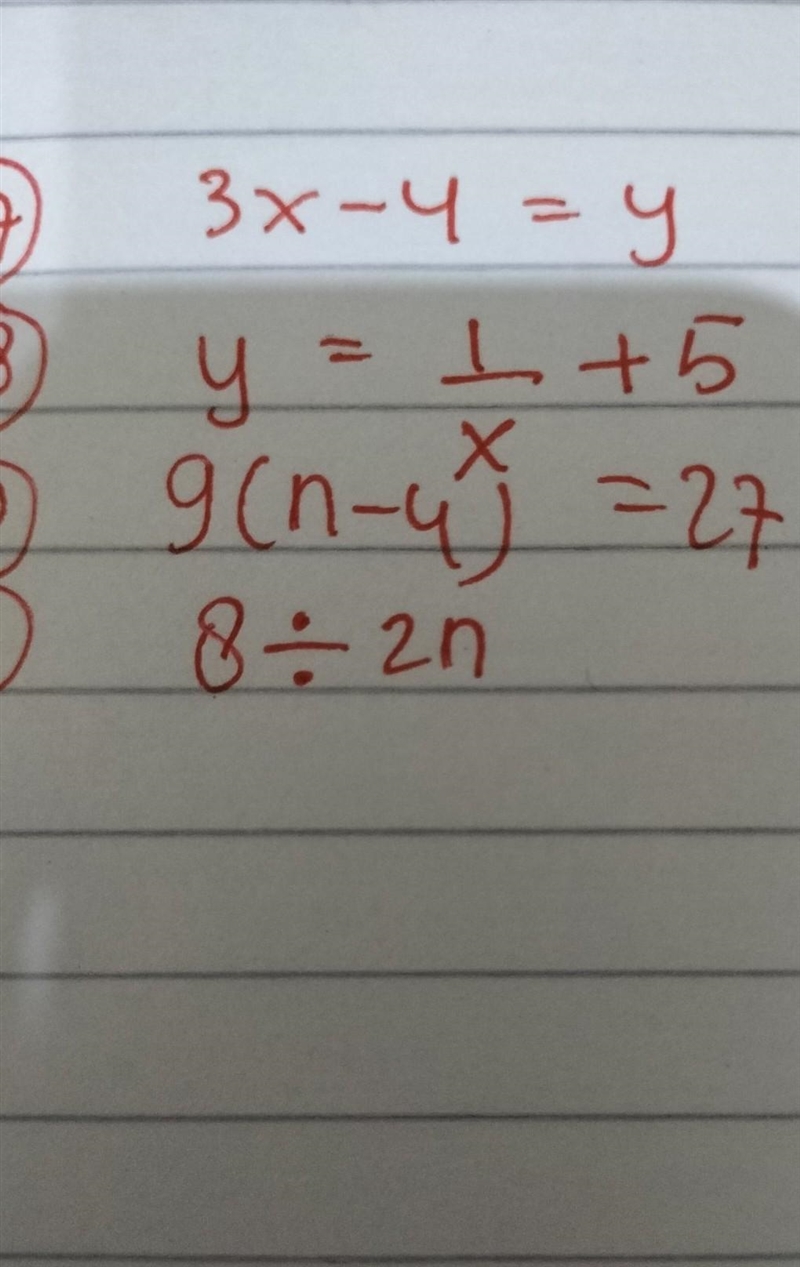 7 3x - 4 = y
8 y = 1/x + 5
9(n-4) = 27
8 ÷ 2n